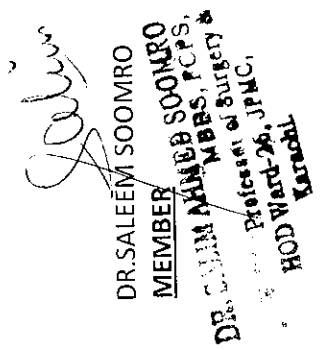 Salim
DR.SALEEM SOOMRO
MEMBER
DR. SALIM AHMED SOOMRO
MBBS, FCPS,
Professor of Surgery &
JPMC,
HOD Ward-26,
Karachi